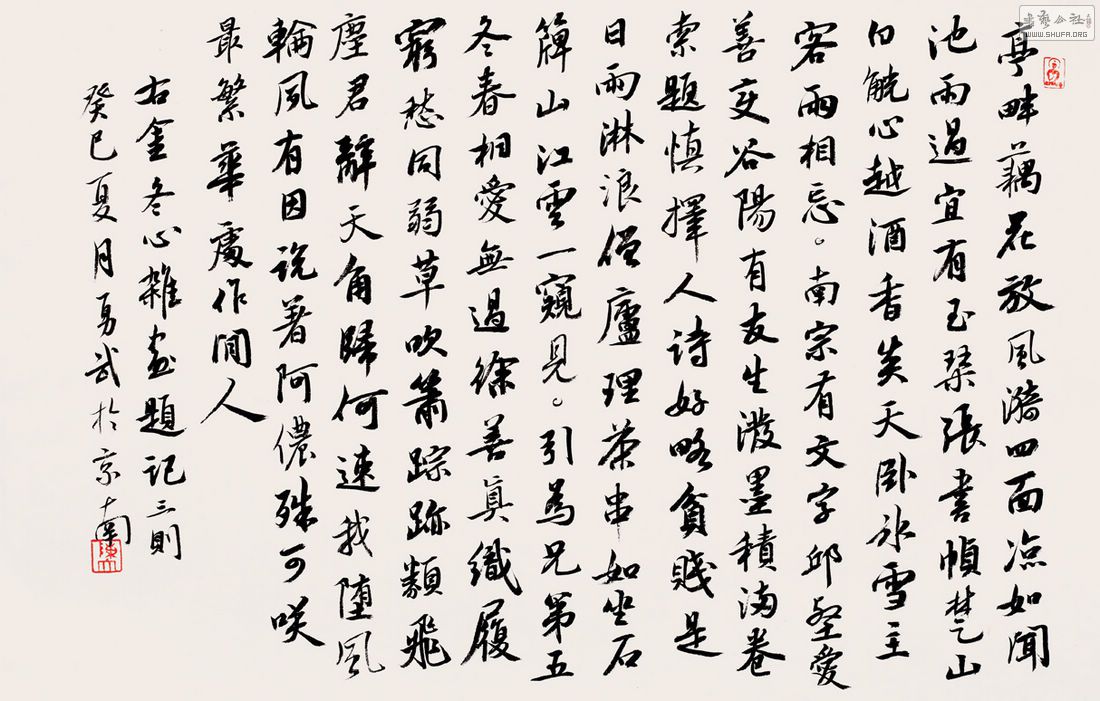 亭畔藕花放風漪四面凉如聞
池雨過宜有玉琴張書幀楚山
白觥心越酒香炎天卧冰雪主
客兩相忘。南宗有文字邱壑愛
善交谷陽有友生潑墨積满卷
索題慎擇人詩好略貧賤是
日雨淋浪僧廬理茶串如坐石
簰山江雲一窺見。引為兄第五
冬春相愛無過徐善真織履
窮愁同弱草吹簫踪跡類飛
塵君辭天角歸何速我堕風
輪風有因說著阿儂殊可咲
最繁華處作閒人
右金冬心雜畫題記三則
癸巳夏月勇武於京南
書藝公社
WWW.SHUFA.ORG